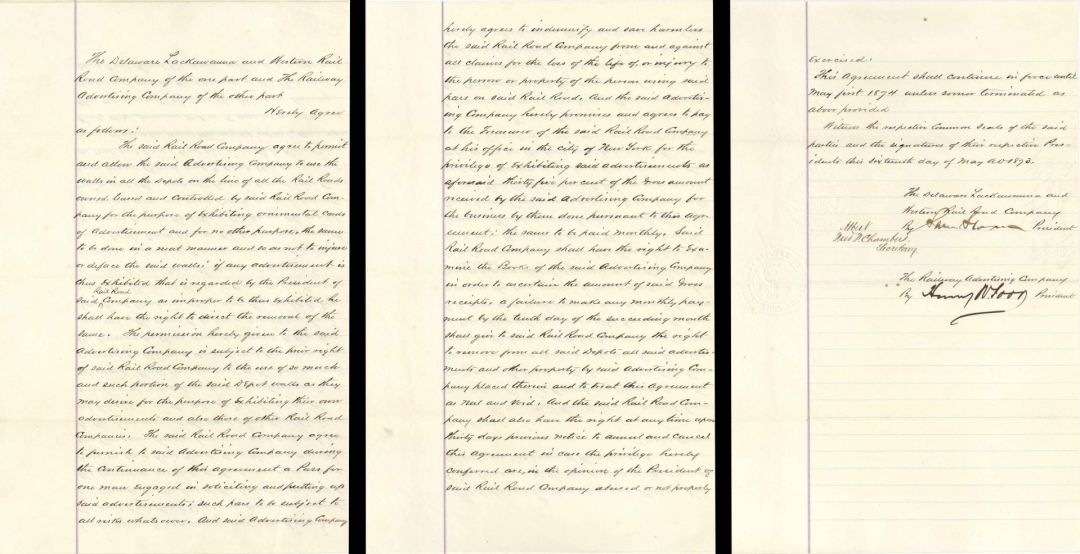 The Delaware Lackawanna and Western Rail
Road Company of the one part and The Railway
Advertising Company of the other part
Hereby Agree
as follows:
The said Rail Road Company agree to permit
and allow the said Advertising Company to use the
walls in all the Depots on the line of all the Rail Roads
owned, leased and controlled by said Rail Road Com-
pany for the purpose of Exhibiting ornimental cards
of Advertisement and for no other purpose, the same
to be done in a neat manner and so as not to injure
or deface the said walls; if any advertisement is
thus Exhibited that is regarded by the President of
Rail Road
said Company as improper to be thus exhibited he
shall have the right to direct the removal of the
same. The permission hereby given to the said
Advertising Company is subject to the prior right
of said Rail Road Company to the use of so much
and such portion of the said Depot walls as they
may desire for the purpose of Exhibiting their own
advertisements and also those of other Rail Road
Companies. The said Rail Road Company agree
to furnish to said Advertising Company during
the Continuance of this agreement a Pass for
one man Engaged in soliciting and putting up
said advertisements; such pass to be subject to
all risks whatsoever. And said Advertising Company
hereby agrees to indemnify and save harmless
the said Rail Road Company from and against
all claims for the loss of the life of, or injury to
the person or property of the person using said
pass on said Rail Road. And the said Advertis-
ing Company hereby promises and agrees to pay
to the Treasurer of the said Rail Road Company
at his office in the city of New York for the
privilege of Exhibiting said advertisements as
aforesaid thirty five per cent of the Gross amount
received by the said Advertising Company for
the business by them done pursuant to this Agr-
eement; the same to be paid monthly. Said
Rail Road Company shall have the right to Exa-
mine the Books of the said Advertising Company
in order to ascertain the amount of said Gross
receipts, a failure to make any monthly pay-
ment by the tenth day of the succeeding month
shall give to said Rail Road Company the right
to remove from all said Depots all said advertise-
ments and other property by said Advertising Com-
pany placed therein and to treat this Agreement
as Null and Void. And the said Rail Road Com-
pany shall also have the right at any time upon
thirty days previous notice to annul and cancel
this Agreement in case the privilege hereby
conferred are, in the opinion of the President of
said Rail Road Company abused or not properly
exercised.
This Agreement shall continue in force until
May first 1874 unless sooner terminated as
above provided
Witness the respective Common Seals of the said
parties and the signatures of their respective Pres-
idents this sixteenth day of May A.D 1873.
The Delaware Lackawanna and
Western Rail Road Company
By Sam Sloan President
Attest
Fred F. Chambers
Secretary
The Railway Advertising Company
By Henry W. President